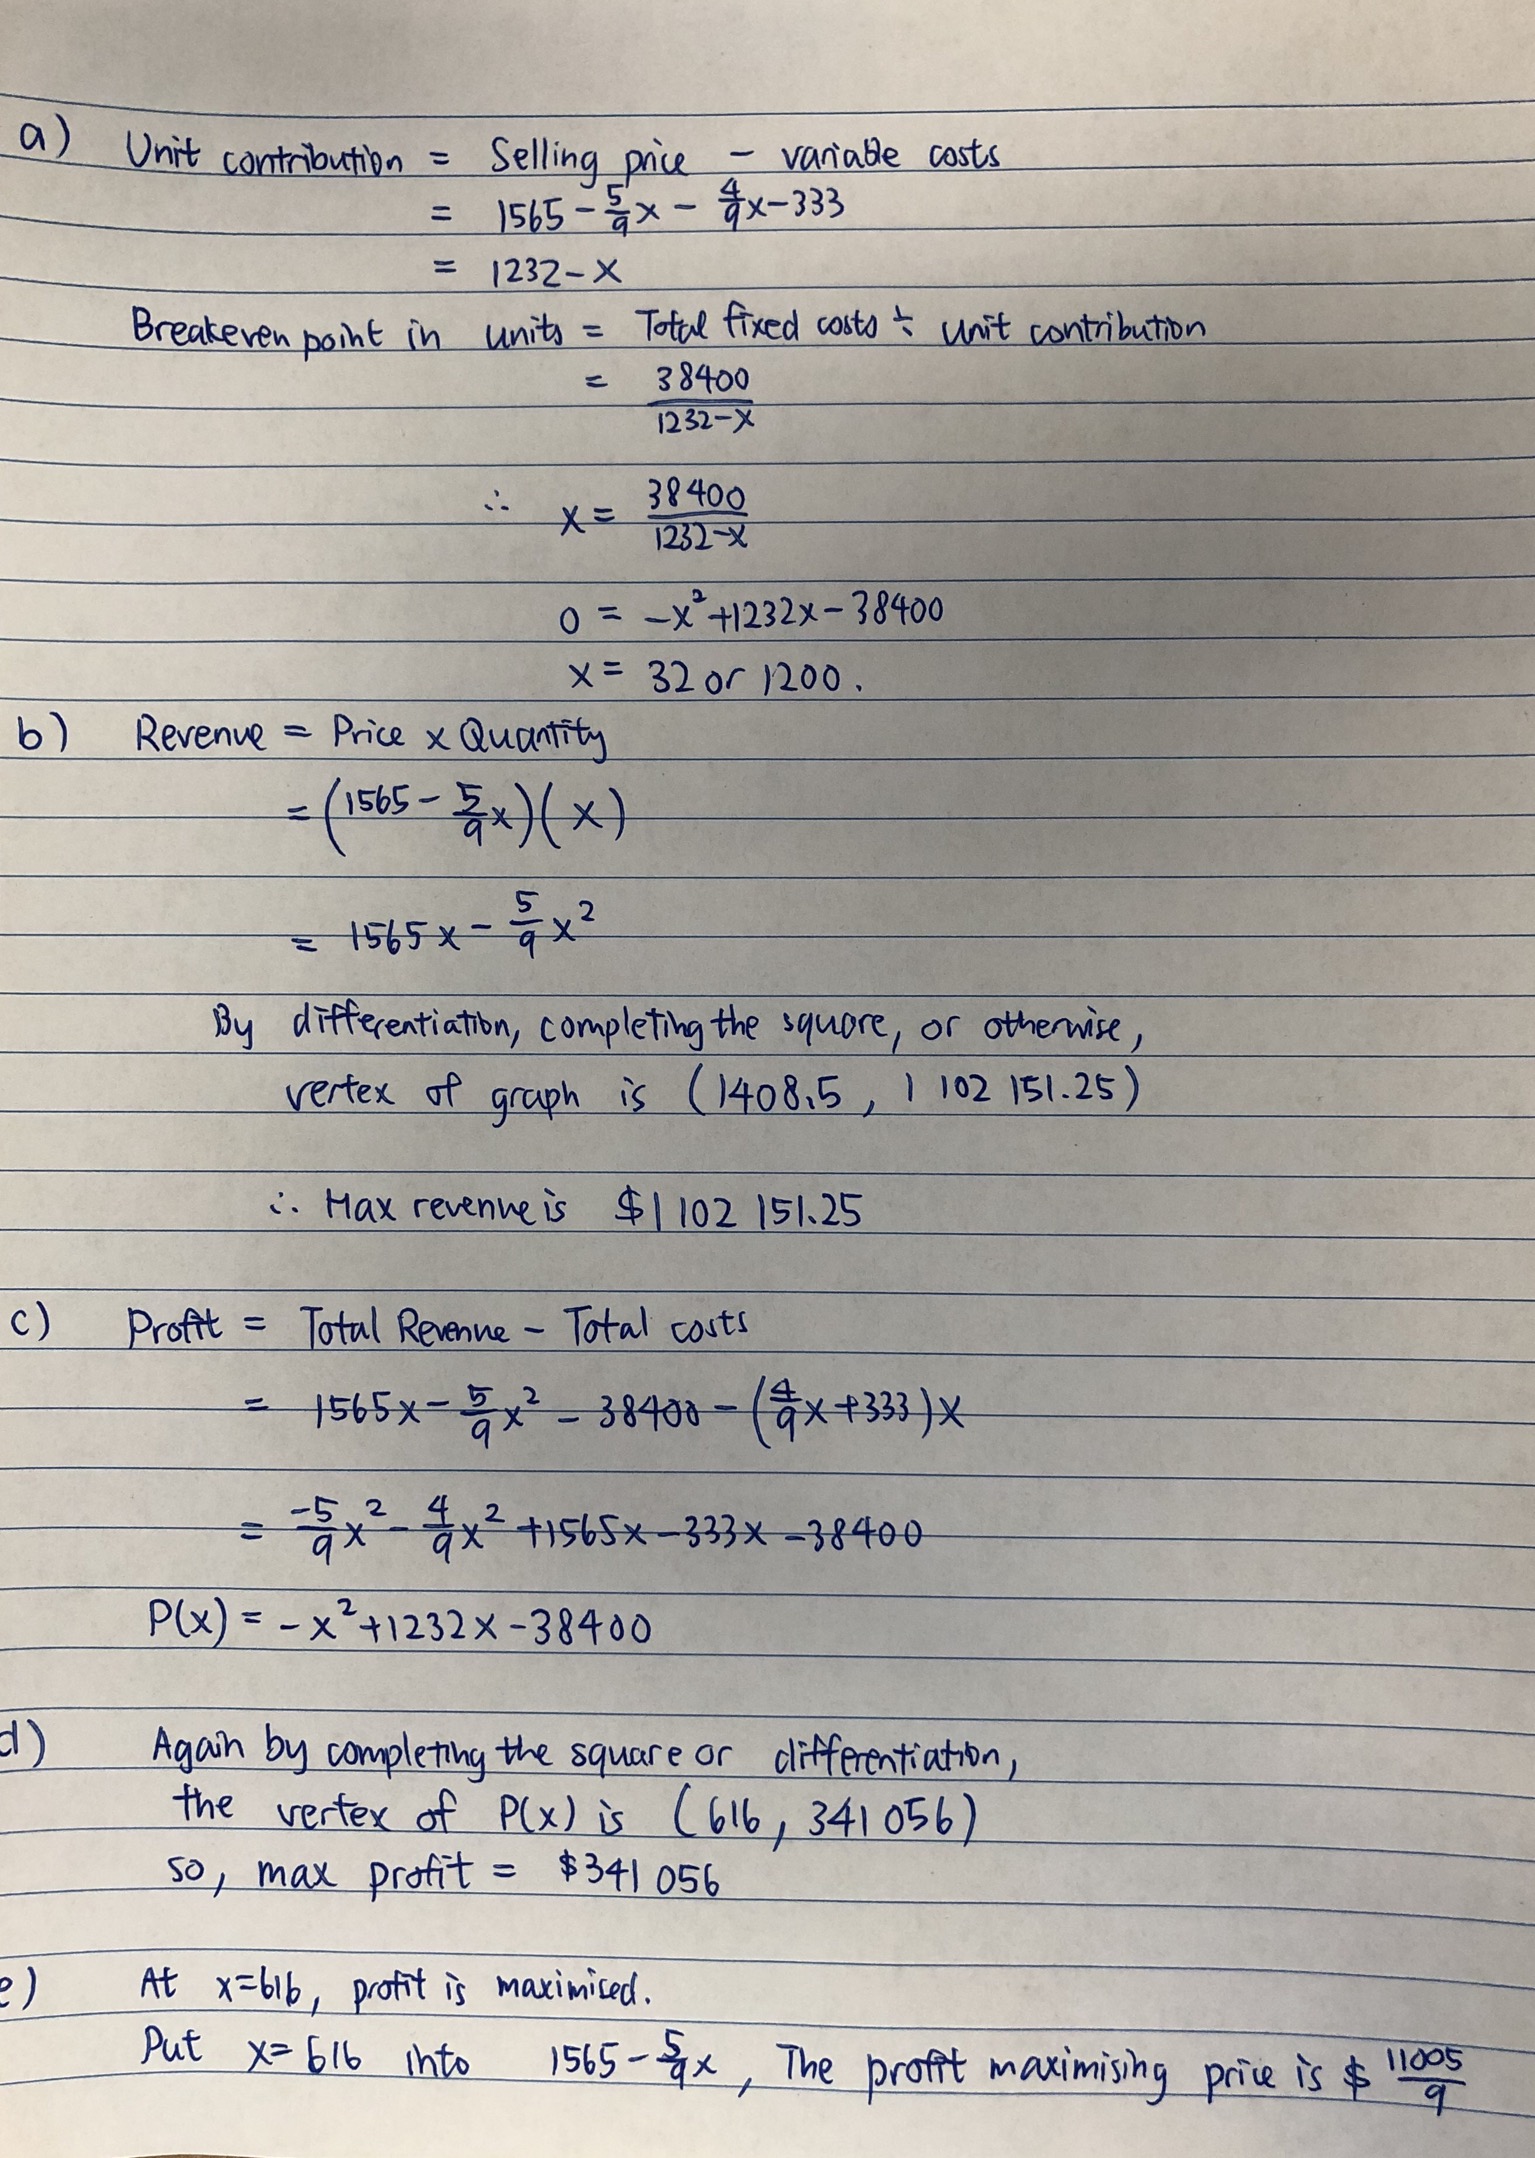 a) Unit contribution = Selling price - variable costs
= 1565 - 5/9 x - 4/9 x - 333
= 1232 - x
Breakeven point in units = Total fixed costs ÷ unit contribution
= 38400/(1232-x)
∴ x = 38400/(1232-x)
0 = -x² + 1232x - 38400
x = 32 or 1200.
b) Revenue = Price x Quantity
= (1565 - 5/9 x)(x)
= 1565x - 5/9 x²
By differentiation, completing the square, or otherwise,
vertex of graph is (1408.5, 1 102 151.25)
∴ Max revenue is $1 102 151.25
c) Profit = Total Revenue - Total costs
= 1565x - 5/9 x² - 38400 - (4/9 x + 333)x
= -5/9 x² - 4/9 x² + 1565x - 333x - 38400
P(x) = -x² + 1232x - 38400
d) Again by completing the square or differentiation,
the vertex of P(x) is (616, 341 056)
so, max profit = $341 056
e) At x=616, profit is maximised.
Put x=616 into 1565 - 5/9 x, The profit maximising price is $ 11005/9